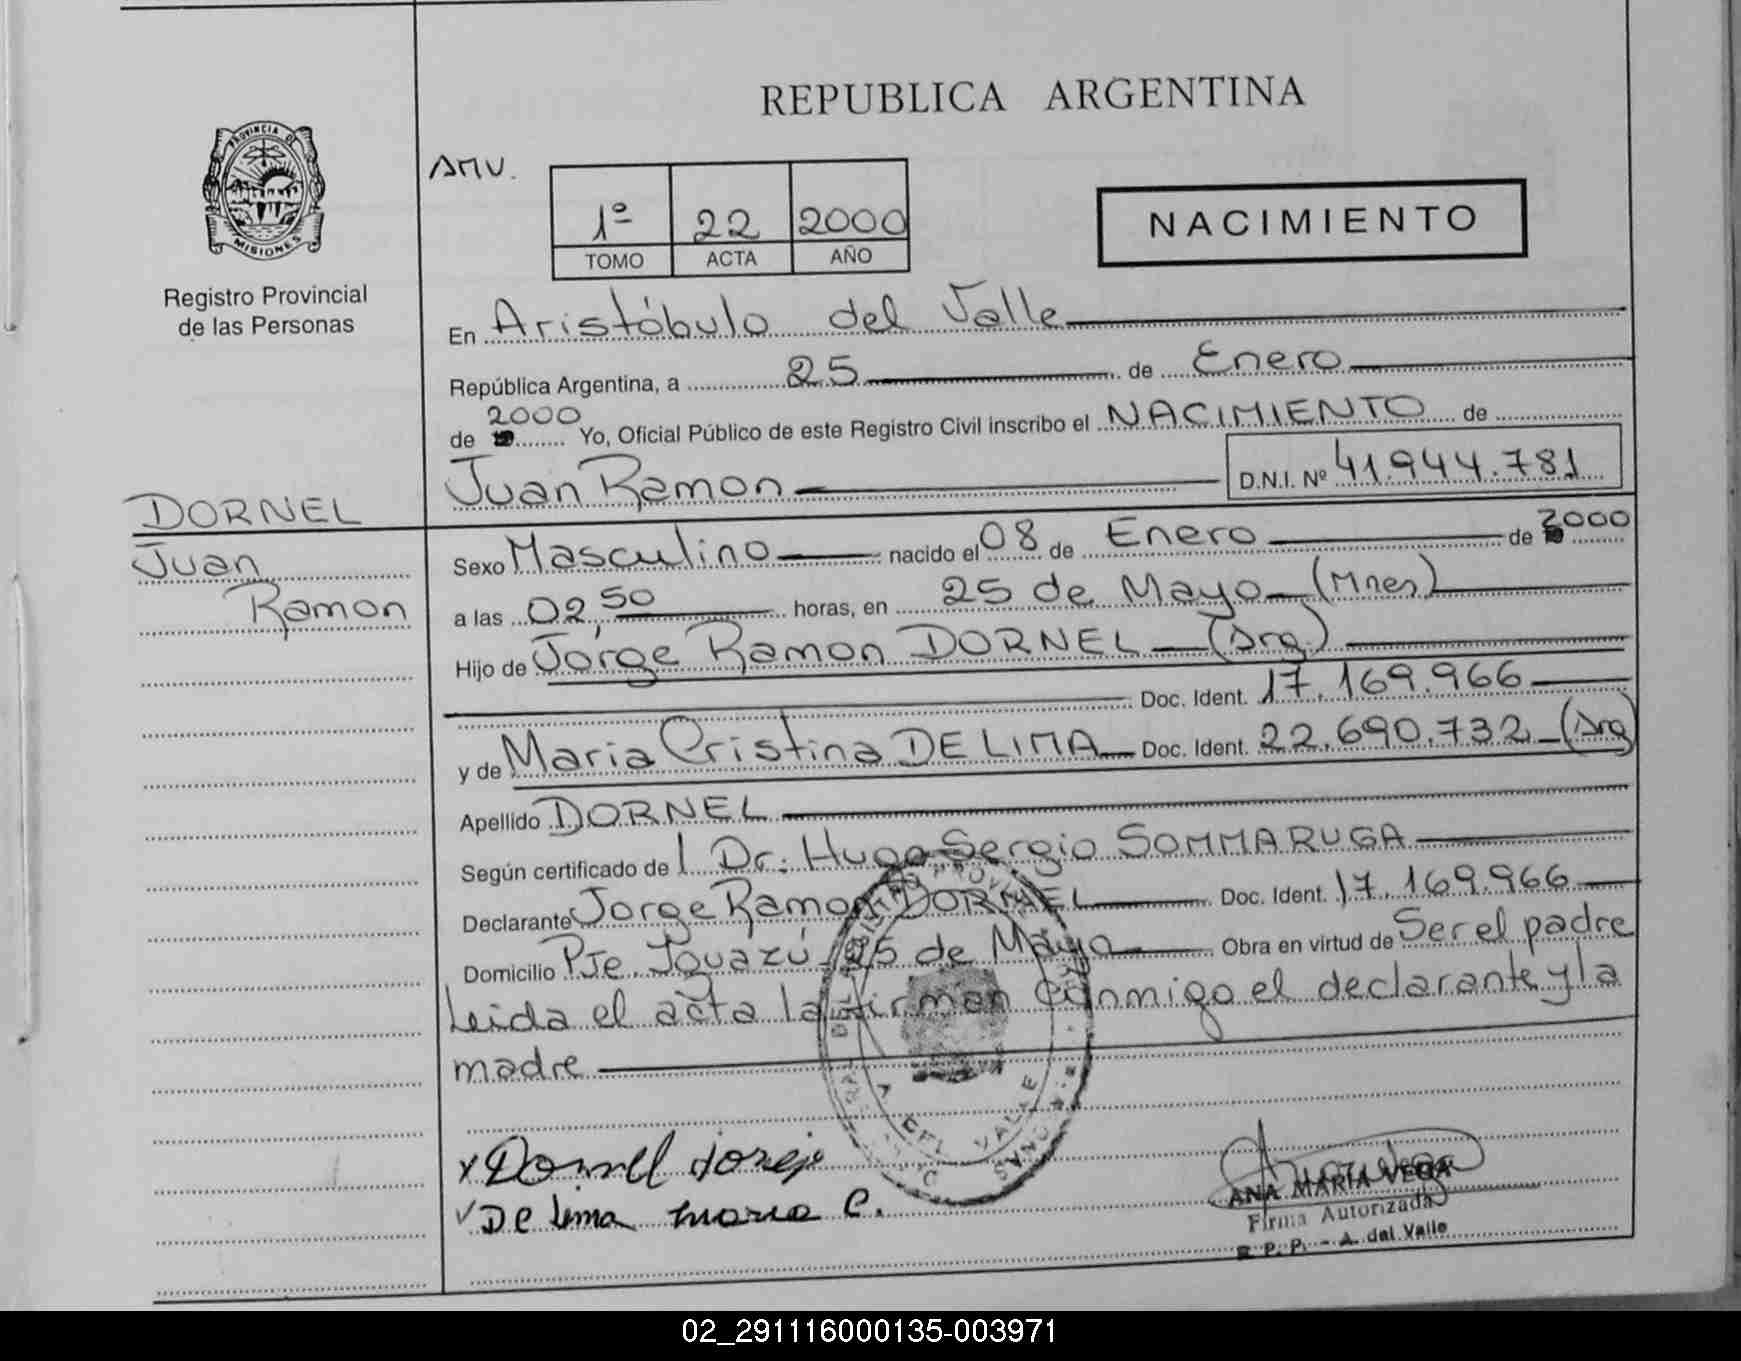 REPUBLICA ARGENTINA
PROVINCIA DE
MISIONES
Registro Provincial
de las Personas
AMV.
1º 22 2000
TOMO ACTA AÑO
NACIMIENTO
En Aristóbulo del Valle
República Argentina, a 25 de Enero
de 2000 Yo, Oficial Público de este Registro Civil inscribo el NACIMIENTO de
Juan Ramon D.N.I. Nº 41.944.781
DORNEL
Juan
Ramon
Sexo Masculino nacido el 08 de Enero de 2000
a las 02,50 horas, en 25 de Mayo (Mnes)
Hijo de Jorge Ramon DORNEL (Arg.)
Doc. Ident. 17.169.966
y de Maria Cristina DE LIMA Doc. Ident. 22.690.732 (Arg)
Apellido DORNEL
Según certificado de Dr: Hugo Sergio SOMMARUGA
Declarante Jorge Ramon DORNEL Doc. Ident. 17.169.966
Domicilio Pje Iguazú 25 de Mayo Obra en virtud de Ser el padre
Leida el acta la firman conmigo el declarante y la
madre
x Dornel Jorge
De Lima Maria C.
ANA MARIA VEGA
Firma Autorizada
R. P. P. - A. del Valle
02_291116000135-003971